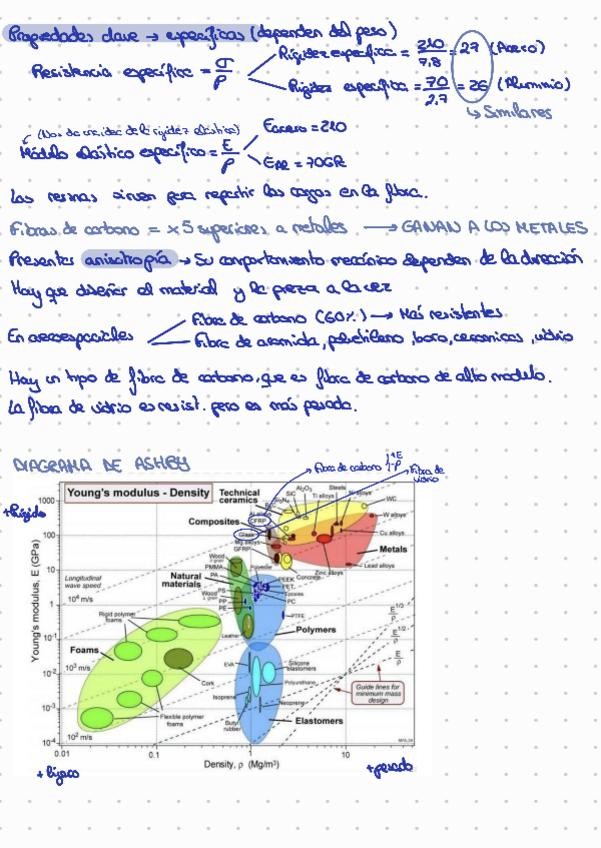 Propiedades clave → específicas (dependen del peso)
Rigidez específica = 210/7,8 = 27 (Acero)
Resistencia específica = σ/ρ
Rigidez específica = 70/2,7 = 26 (Aluminio)
↳ Similares
(Nos da una idea de la rigidez elástica)
Módulo elástico específico = E/ρ
Eacero = 210
EAl = 70GPa
Las resinas sirven para repartir las cargas en la fibra.
Fibras de carbono = x5 superiores a metales → GANAN A LOS METALES
Presentan anisotropía → Su comportamiento mecánico dependen de la dirección
Hay que diseñar el material y la pieza a la vez
En aeroespaciales
Fibra de carbono (60%) → Más resistentes
Fibra de aramida, polietileno, boro, cerámicas, vidrio
Hay un tipo de fibra de carbono, que es fibra de carbono de alto modulo.
La fibra de vidrio es resist. pero es más pesada.
DIAGRAMA DE ASHBY
Fibra de carbono ↑E ↓ρ
Fibra de vidrio
+Rígido
Young's modulus - Density
Technical ceramics
Al2O3
SiC
Si3N4
Steels
Ti alloys
Ni alloys
WC
W alloys
Cu alloys
Composites
CFRP
Glass
Mg alloys
GFRP
Metals
Lead alloys
Zinc alloys
Concrete
Natural materials
Wood
PMMA
Polyester
PA
PEEK
PET
Epoxies
PC
PS
PP
PE
Wood
PTFE
Leather
Polymers
Longitudinal wave speed
10⁴ m/s
Rigid polymer foams
Foams
10³ m/s
Cork
Flexible polymer foams
10² m/s
EVA
Silicone elastomers
Polyurethane
Isoprene
Neoprene
Butyl rubber
Elastomers
E^1/3/ρ
E^1/2/ρ
E/ρ
Guide lines for minimum mass design
Young's modulus, E (GPa)
1000
100
10
1
10⁻¹
10⁻²
10⁻³
10⁻⁴
0.01
0.1
1
10
Density, ρ (Mg/m³)
+ ligero
+pesado